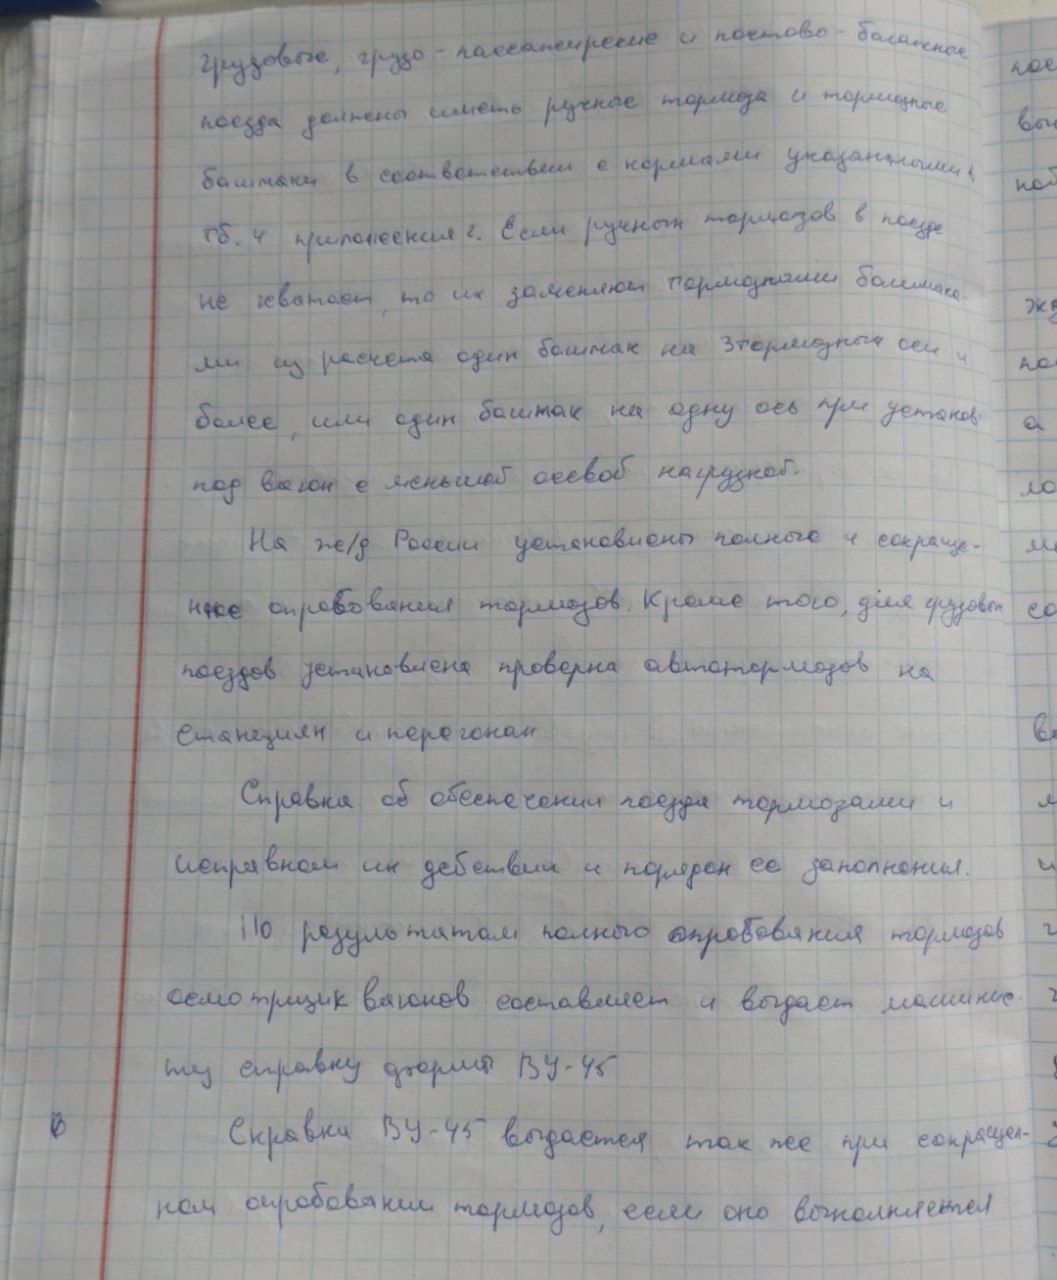 грузовые, грузо-пассажирские и почтово-багажные
поезда должны иметь ручные тормоза и тормозные
башмаки в соответствии с нормами указанными в
тб. 4 приложения 2. Если ручных тормозов в поезде
не хватает, то их заменяют тормозными башмака-
ми из расчета один башмак на 3 тормозных оси и
более, или один башмак на одну ось при установ.
под вагон с меньшей осевой нагрузкой.
На ж/д России установлены полные и сокраще-
нное опробования тормозов. Кроме того, для грузовых
поездов установлена проверка автотормозов на
станциях и перегонах
Справка об обеспечении поезда тормозами и
исправном их действии и порядок ее заполнения.
По результатам полного опробования тормозов
осмотрщик вагонов составляет и выдаст машинис-
ту справку формы ВУ-45
Справка ВУ-45 выдается так же при сокращен-
ном опробовании тормозов, если оно выполняется